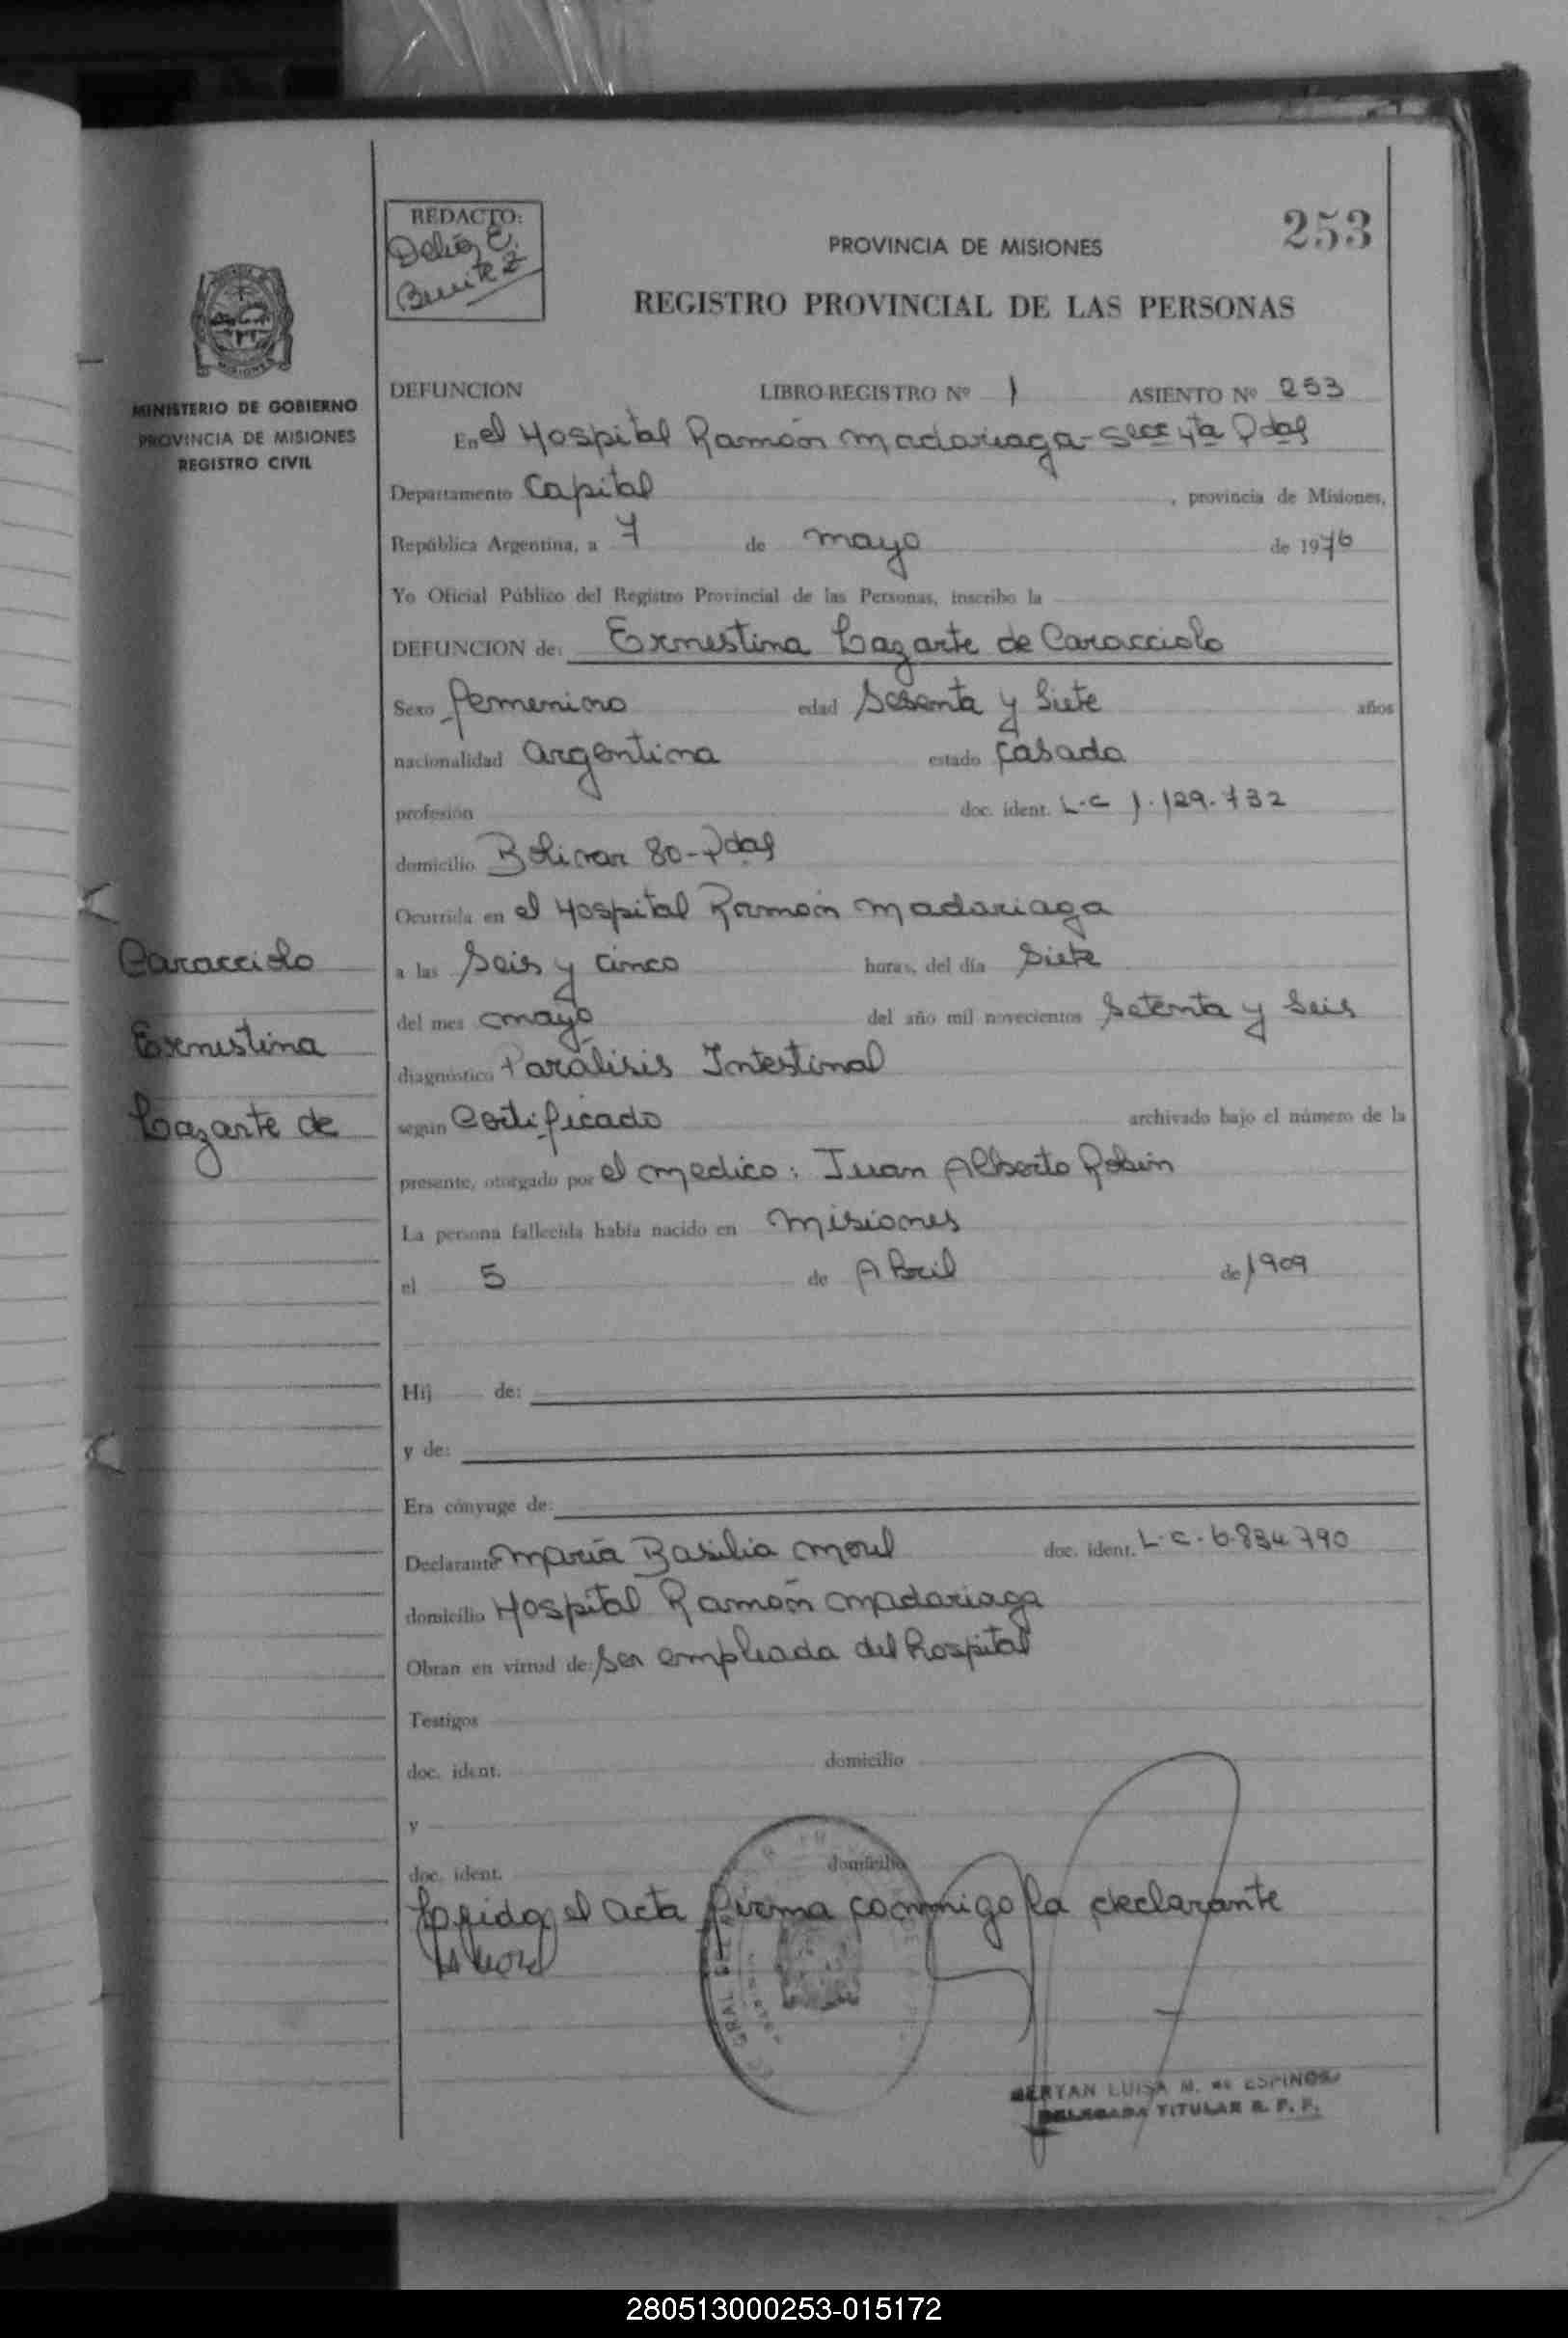 REDACTO:
Delia E.
Benitez
PROVINCIA DE MISIONES
253
REGISTRO PROVINCIAL DE LAS PERSONAS
MINISTERIO DE GOBIERNO
PROVINCIA DE MISIONES
REGISTRO CIVIL
DEFUNCION LIBRO-REGISTRO Nº 1 ASIENTO Nº 253
En el Hospital Ramón Madariaga - Secc 4ta Pdas
Departamento Capital, provincia de Misiones,
República Argentina, a 7 de mayo de 1976
Yo Oficial Público del Registro Provincial de las Personas, inscribo la
DEFUNCION de: Ernestina Lazarte de Caracciolo
Sexo femenino edad Sesenta y Siete años
nacionalidad argentina estado casada
profesión doc. ident. L-C 1.129.732
domicilio Bolivar 80-Pdas
Ocurrida en el Hospital Ramón Madariaga
a las Seis y cinco horas, del día Siete
del mes mayo del año mil novecientos Setenta y Seis
diagnóstico Parálisis Intestinal
según Certificado archivado bajo el número de la
presente, otorgado por el medico: Juan Alberto Robin
La persona fallecida había nacido en Misiones
el 5 de Abril de 1909
Caracciolo
Ernestina
Lazarte de
Hij de:
y de:
Era cónyuge de:
Declarante María Basilia Morel doc. ident. L-C-6.834.790
domicilio Hospital Ramón Madariaga
Obran en virtud de: Ser empleada del hospital
Testigos
doc. ident. domicilio
y
doc. ident. domicilio
Leida el acta firma conmigo la declarante
Morel
LUISA M. de ESPINOSA
DELEGADA TITULAR R. P. P.
280513000253-015172